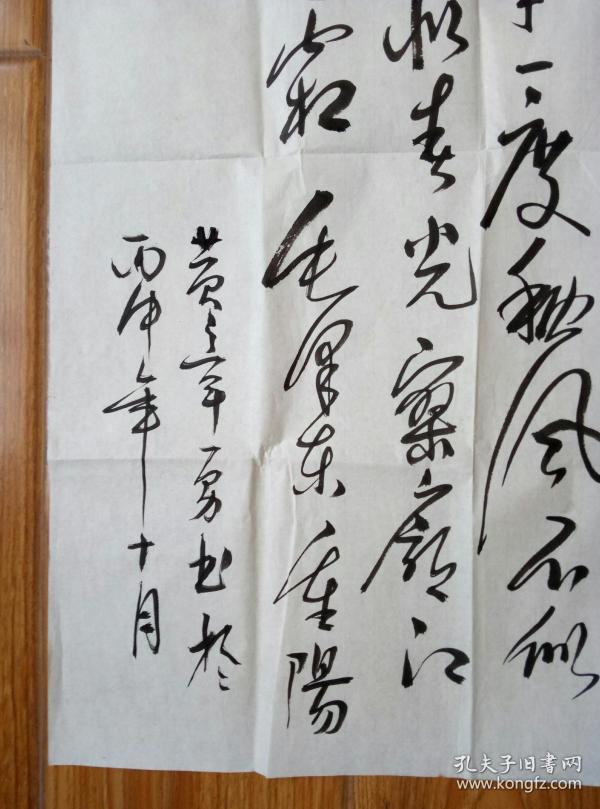 一度秋风不似
似春光寥廓江
霜 毛泽东重陽
黄勇书於
丙申年十月
孔夫子旧书网
www.kongfz.com